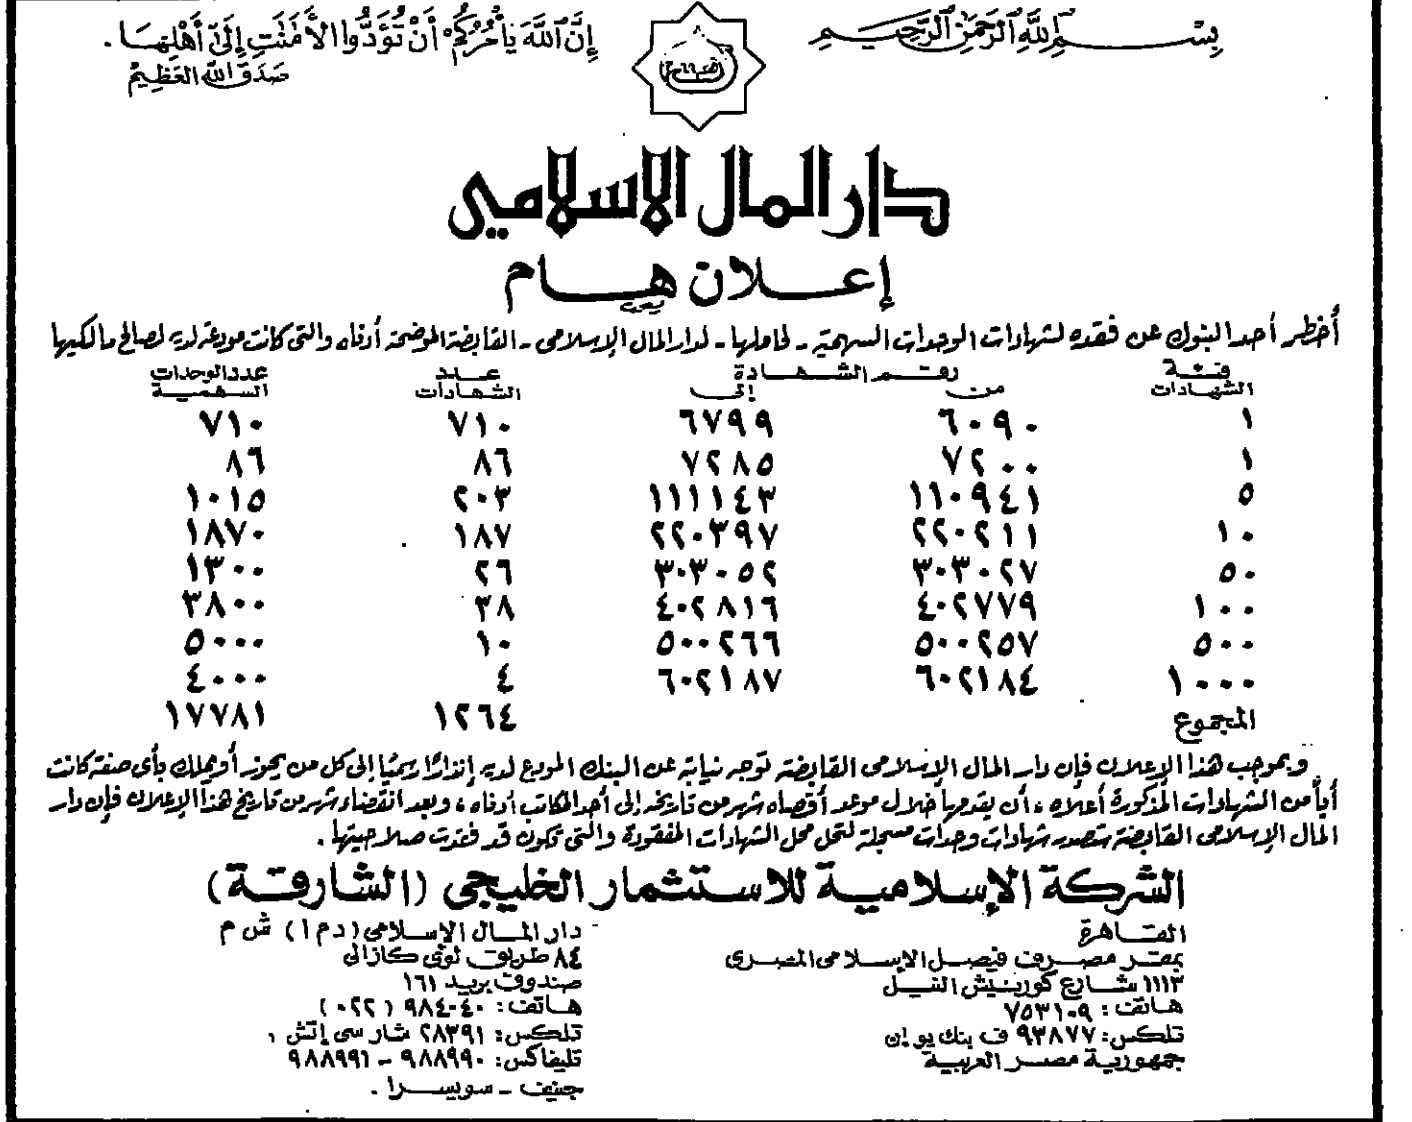 بِسْمِ اللَّهِ الرَّحْمَنِ الرَّحِيمِ
إِنَّ اللَّهَ يَأْمُرُكُمْ أَنْ تُؤَدُّوا الْأَمَنَتِ إِلَىٰ أَهْلِهَا .
صَدَقَ اللهُ العَظِيمُ
دار المال الاسلامي
إعلان هام
أُخطر أحد البنوك عن فقده لشهادات الوحدات السهمية - لحاملها - لدار المال الإسلامى - القابضة الموضحة أدناه والتى كانت مودعة لديه لصالح مالكيها
فئة الشهادات رقم الشهادة عدد الشهادات عدد الوحدات السهمية
من إلى
١ ٦٠٩٠ ٦٧٩٩ ٧١٠ ٧١٠
١ ٧٢٠٠ ٧٢٨٥ ٨٦ ٨٦
٥ ١١٠٩٤١ ١١١١٤٣ ٢٠٣ ١٠١٥
١٠ ٢٢٠٢١١ ٢٢٠٣٩٧ ١٨٧ ١٨٧٠
٥٠ ٣٠٣٠٢٧ ٣٠٣٠٥٢ ٢٦ ١٣٠٠
١٠٠ ٤٠٢٧٧٩ ٤٠٢٨١٦ ٣٨ ٣٨٠٠
٥٠٠ ٥٠٠٢٥٧ ٥٠٠٢٦٦ ١٠ ٥٠٠٠
١٠٠٠ ٦٠٢١٨٤ ٦٠٢١٨٧ ٤ ٤٠٠٠
المجموع ١٢٦٤ ١٧٧٨١
وبموجب هذا الإعلان فإن دار المال الإسلامى القابضة توجه نيابة عن البنك المودع لديه إنذارًا رسميًا إلى كل من يحوز أو يملك بأى صفة كانت
أيًا من الشهادات المذكورة أعلاه ، أن يقدمها خلال موعد أقصاه شهر من تاريخه إلى أحد المكاتب أدناه ، وبعد انقضاء شهر من تاريخ هذا الإعلان فإن دار
المال الإسلامى القابضة ستصدر شهادات وحدات مسجلة لتحل محل الشهادات المفقودة والتى تكون قد فقدت صلاحيتها .
الشركة الإسلامية للاستثمار الخليجي (الشارقة)
القاهرة
بمقر مصرف فيصل الإسلامى المصرى
١١١٣ شارع كورنيش النيل
هاتف : ٧٥٣١٠٩
تلكس: ٩٣٨٧٧ ف بنك يو إن
جمهورية مصر العربية
دار المال الإسلامى (د م ا) ش م
٨٤ طريق لوى كازالى
صندوق بريد ١٦١
هاتف: ٩٨٤٠٤٠ (٠٢٢)
تلكس: ٢٨٣٩١ شار سى إتش ،
تليفاكس: ٩٨٨٩٩٠ - ٩٨٨٩٩١
جنيف - سويسرا .